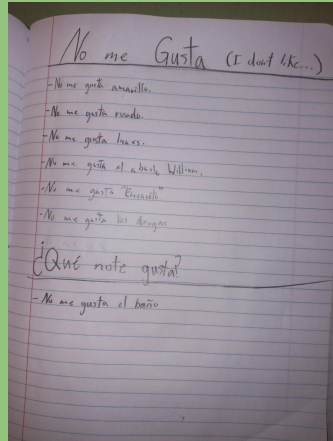 No me Gusta (I dont like...)
- No me gusta amarillo.
- No me gusta
- No me gusta lunes.
- No me gusta el William.
- No me gusta
- No me gusta las drogas
¿Qué note gusta?
- No me gusta el baño